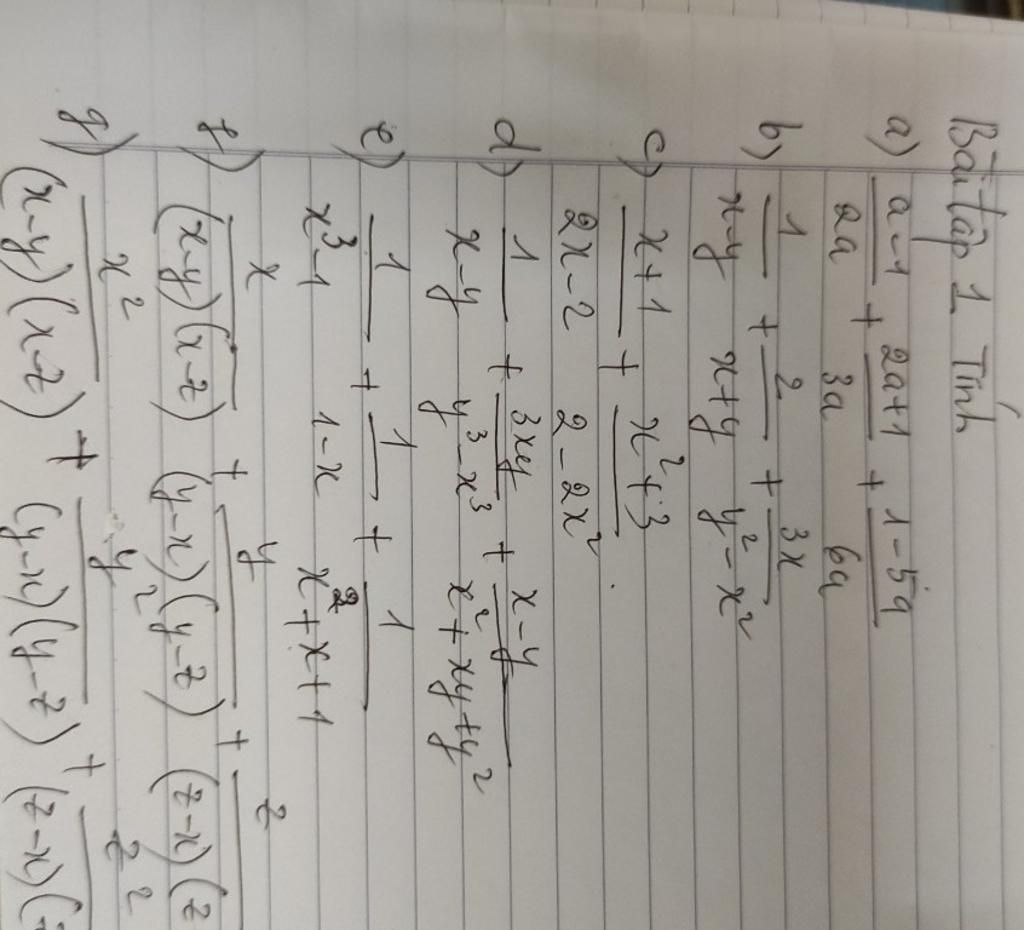 Bài tập 1 Tính
a) a-1/2a + 2a+1/3a + 1-5a/6a
b) 1/x-y + 2/x+y + 3x/y²-x²
c) x+1/2x-2 + x²+3/2-2x².
d) 1/x-y + 3xy/y³-x³ + x-y/x²+xy+y²
e) 1/x³-1 + 1/1-x + 1/x²+x+1
f) x/(x-y)(x-z) + y/(y-x)(y-z) + z/(z-x)(z
g) x²/(x-y)(x-z) + y²/(y-x)(y-z) + z²/(z-x)(